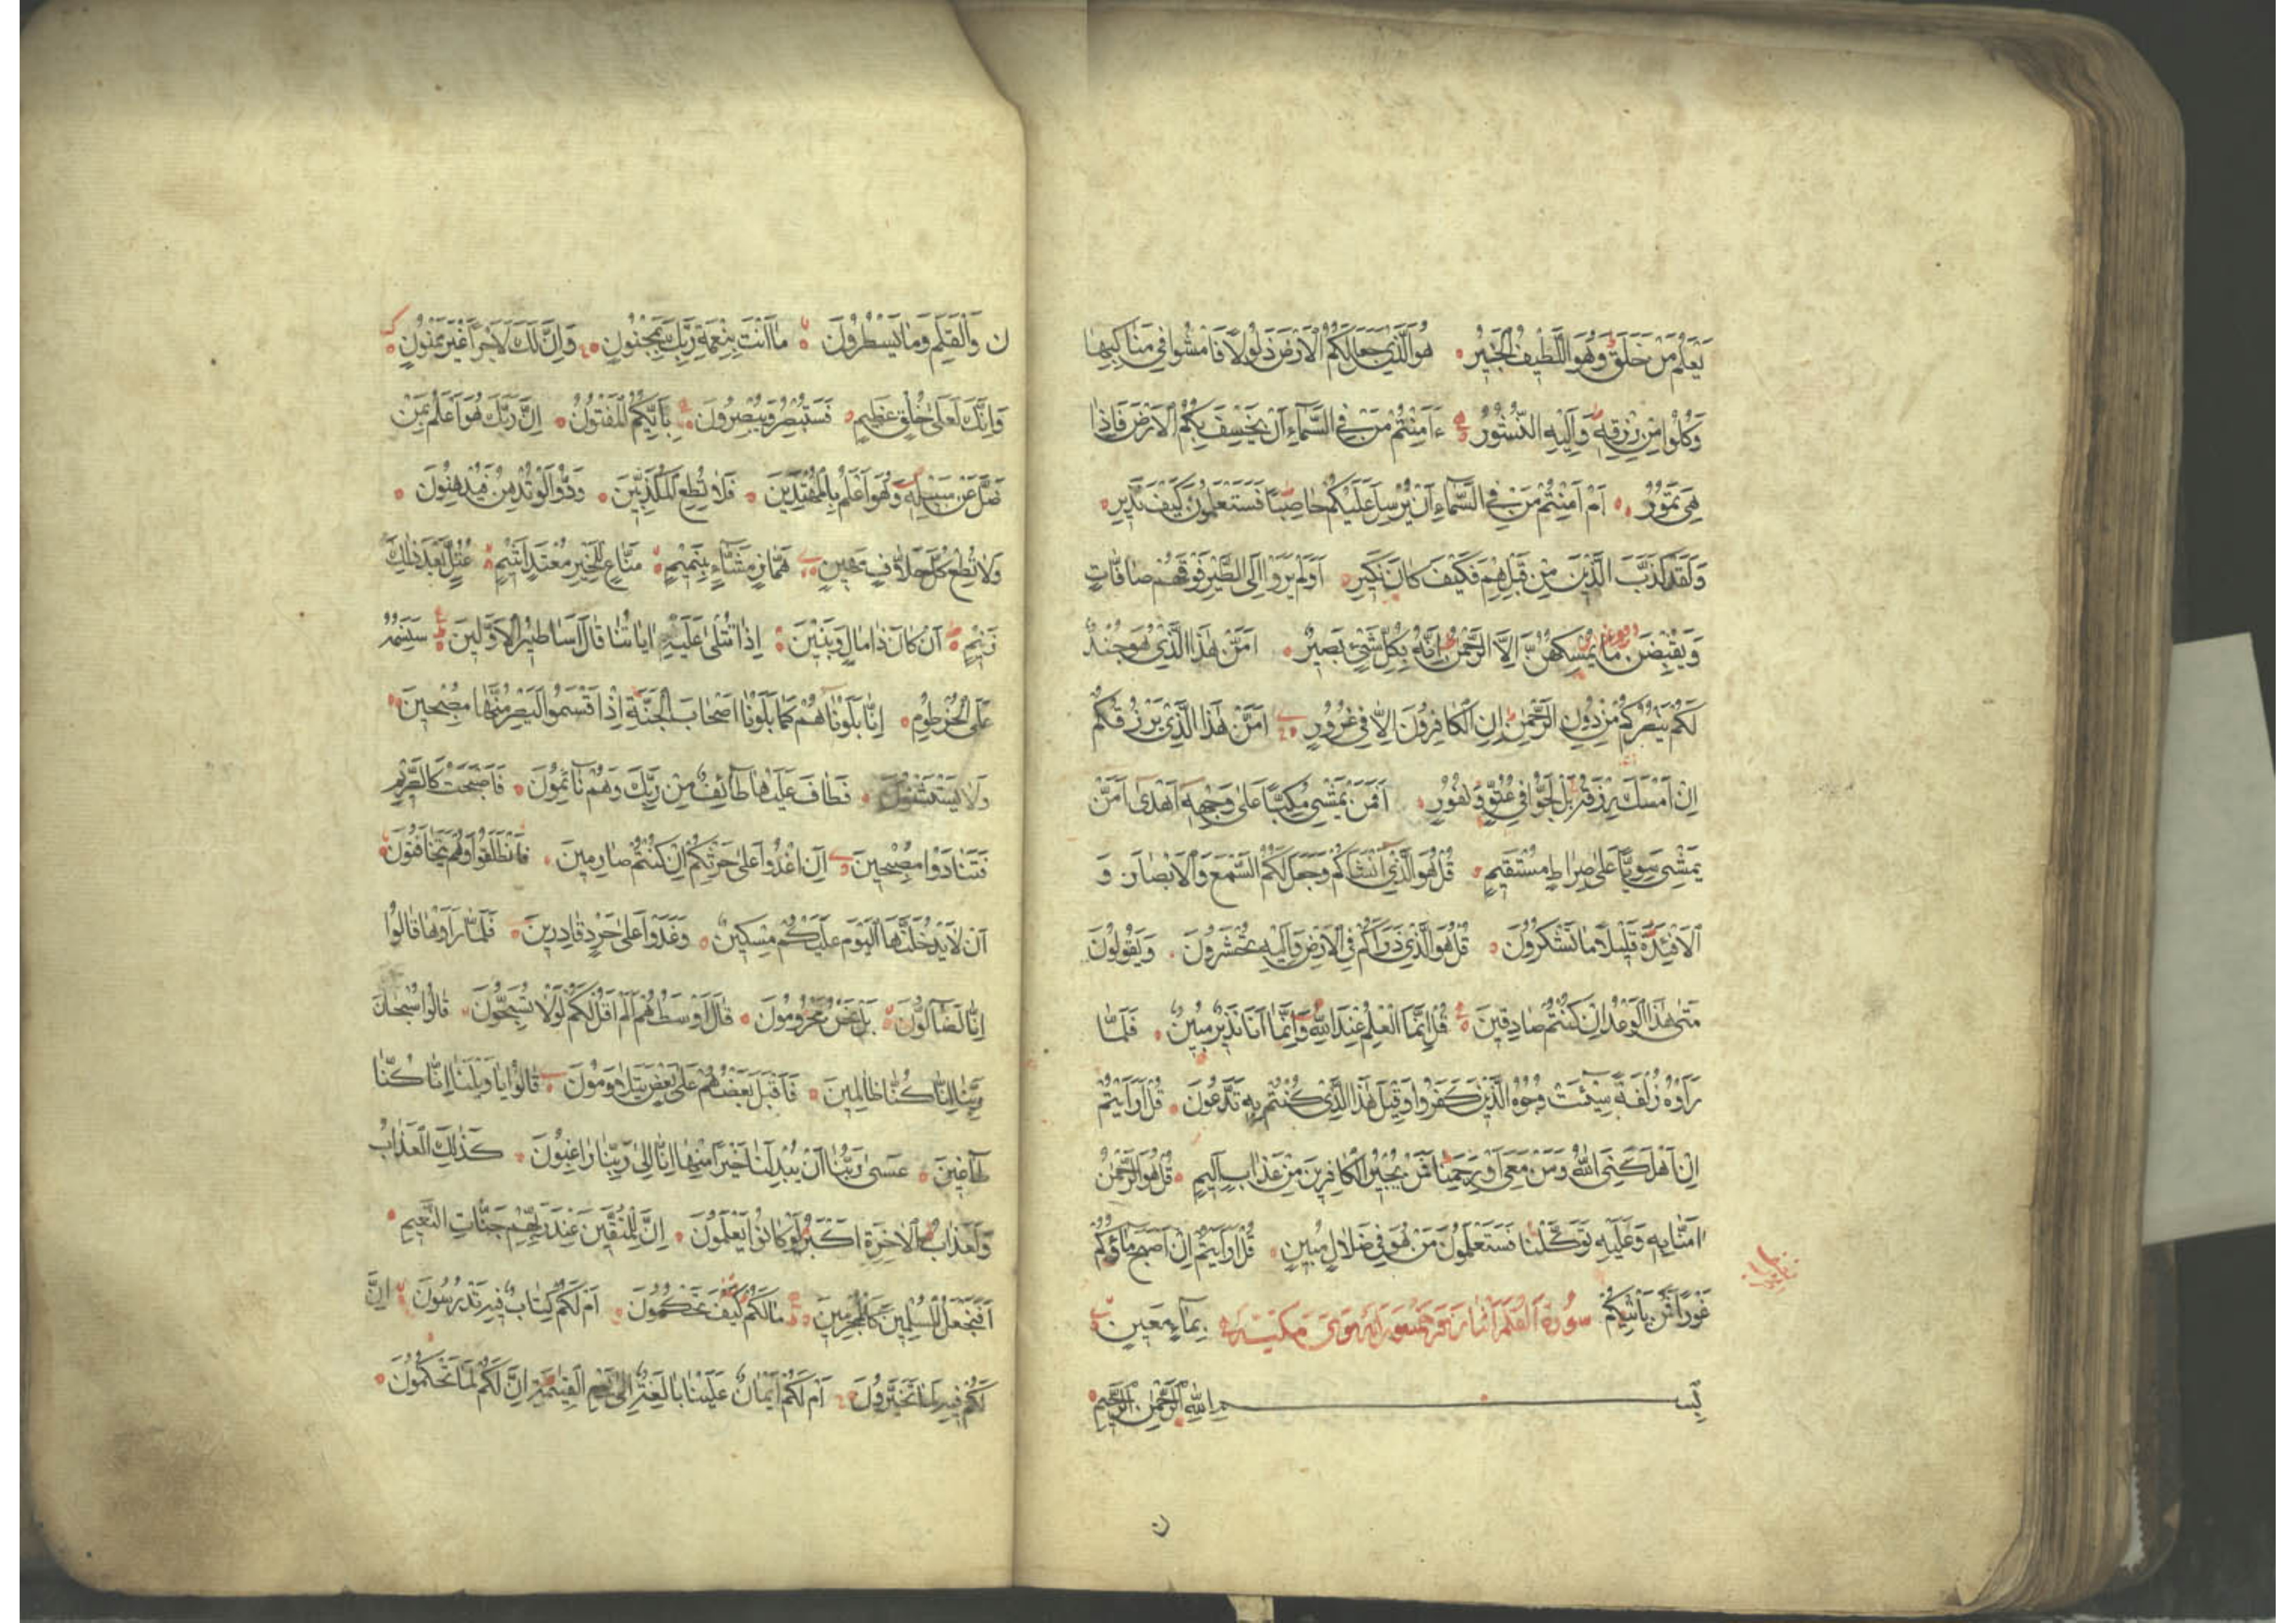 يَعْلَمُ مَنْ خَلَقَ وَهُوَ اللَّطِيفُ الْخَبِيرُ هُوَ الَّذِي جَعَلَ لَكُمُ الْاَرْضَ ذَلُولًا فَامْشُوا فِي مَنَاكِبِهَا
وَكُلُوا مِنْ رِزْقِهِ وَاِلَيْهِ النُّشُورُ ءَاَمِنْتُمْ مَنْ فِي السَّمَاءِ اَنْ يَخْسِفَ بِكُمُ الْاَرْضَ فَاِذَا
هِيَ تَمُورُ اَمْ اَمِنْتُمْ مَنْ فِي السَّمَاءِ اَنْ يُرْسِلَ عَلَيْكُمْ حَاصِبًا فَسَتَعْلَمُونَ كَيْفَ نَذِيرِ
وَلَقَدْ كَذَّبَ الَّذِينَ مِنْ قَبْلِهِمْ فَكَيْفَ كَانَ نَكِيرِ اَوَلَمْ يَرَوْا اِلَى الطَّيْرِ فَوْقَهُمْ صَافَّاتٍ
وَيَقْبِضْنَ مَا يُمْسِكُهُنَّ اِلَّا الرَّحْمٰنُ اِنَّهُ بِكُلِّ شَيْءٍ بَصِيرٌ اَمَّنْ هٰذَا الَّذِي هُوَ جُنْدٌ
لَكُمْ يَنْصُرُكُمْ مِنْ دُونِ الرَّحْمٰنِ اِنِ الْكَافِرُونَ اِلَّا فِي غُرُورٍ اَمَّنْ هٰذَا الَّذِي يَرْزُقُكُمْ
اِنْ اَمْسَكَ رِزْقَهُ بَلْ لَجُّوا فِي عُتُوٍّ وَنُفُورٍ اَفَمَنْ يَمْشِي مُكِبًّا عَلَى وَجْهِهِ اَهْدَى اَمَّنْ
يَمْشِي سَوِيًّا عَلَى صِرَاطٍ مُسْتَقِيمٍ قُلْ هُوَ الَّذِي اَنْشَاَكُمْ وَجَعَلَ لَكُمُ السَّمْعَ وَالْاَبْصَارَ وَ
الْاَفْئِدَةَ قَلِيلًا مَا تَشْكُرُونَ قُلْ هُوَ الَّذِي ذَرَاَكُمْ فِي الْاَرْضِ وَاِلَيْهِ تُحْشَرُونَ وَيَقُولُونَ
مَتَى هٰذَا الْوَعْدُ اِنْ كُنْتُمْ صَادِقِينَ قُلْ اِنَّمَا الْعِلْمُ عِنْدَ اللّٰهِ وَاِنَّمَا اَنَا نَذِيرٌ مُبِينٌ فَلَمَّا
رَاَوْهُ زُلْفَةً سِيئَتْ وُجُوهُ الَّذِينَ كَفَرُوا وَقِيلَ هٰذَا الَّذِي كُنْتُمْ بِهِ تَدَّعُونَ قُلْ اَرَاَيْتُمْ
اِنْ اَهْلَكَنِيَ اللّٰهُ وَمَنْ مَعِيَ اَوْ رَحِمَنَا فَمَنْ يُجِيرُ الْكَافِرِينَ مِنْ عَذَابٍ اَلِيمٍ قُلْ هُوَ الرَّحْمٰنُ
اٰمَنَّا بِهِ وَعَلَيْهِ تَوَكَّلْنَا فَسَتَعْلَمُونَ مَنْ هُوَ فِي ضَلَالٍ مُبِينٍ قُلْ اَرَاَيْتُمْ اِنْ اَصْبَحَ مَاؤُكُمْ
غَوْرًا فَمَنْ يَاْتِيكُمْ بِمَاءٍ مَعِينٍ
سُورَةُ الْقَلَمِ مَكِّيَّة
بِسْمِ اللّٰهِ الرَّحْمٰنِ الرَّحِيمِ
ن
ن وَالْقَلَمِ وَمَا يَسْطُرُونَ مَا اَنْتَ بِنِعْمَةِ رَبِّكَ بِمَجْنُونٍ وَاِنَّ لَكَ لَاَجْرًا غَيْرَ مَمْنُونٍ
وَاِنَّكَ لَعَلَى خُلُقٍ عَظِيمٍ فَسَتُبْصِرُ وَيُبْصِرُونَ بِاَيِّكُمُ الْمَفْتُونُ اِنَّ رَبَّكَ هُوَ اَعْلَمُ بِمَنْ
ضَلَّ عَنْ سَبِيلِهِ وَهُوَ اَعْلَمُ بِالْمُهْتَدِينَ فَلَا تُطِعِ الْمُكَذِّبِينَ وَدُّوا لَوْ تُدْهِنُ فَيُدْهِنُونَ
وَلَا تُطِعْ كُلَّ حَلَّافٍ مَهِينٍ هَمَّازٍ مَشَّاءٍ بِنَمِيمٍ مَنَّاعٍ لِلْخَيْرِ مُعْتَدٍ اَثِيمٍ عُتُلٍّ بَعْدَ ذٰلِكَ
زَنِيمٍ اَنْ كَانَ ذَا مَالٍ وَبَنِينَ اِذَا تُتْلَى عَلَيْهِ اٰيَاتُنَا قَالَ اَسَاطِيرُ الْاَوَّلِينَ سَنَسِمُهُ
عَلَى الْخُرْطُومِ اِنَّا بَلَوْنَاهُمْ كَمَا بَلَوْنَا اَصْحَابَ الْجَنَّةِ اِذْ اَقْسَمُوا لَيَصْرِمُنَّهَا مُصْبِحِينَ
وَلَا يَسْتَثْنُونَ فَطَافَ عَلَيْهَا طَائِفٌ مِنْ رَبِّكَ وَهُمْ نَائِمُونَ فَاَصْبَحَتْ كَالصَّرِيمِ
فَتَنَادَوْا مُصْبِحِينَ اَنِ اغْدُوا عَلَى حَرْثِكُمْ اِنْ كُنْتُمْ صَارِمِينَ فَانْطَلَقُوا وَهُمْ يَتَخَافَتُونَ
اَنْ لَا يَدْخُلَنَّهَا الْيَوْمَ عَلَيْكُمْ مِسْكِينٌ وَغَدَوْا عَلَى حَرْدٍ قَادِرِينَ فَلَمَّا رَاَوْهَا قَالُوا
اِنَّا لَضَالُّونَ بَلْ نَحْنُ مَحْرُومُونَ قَالَ اَوْسَطُهُمْ اَلَمْ اَقُلْ لَكُمْ لَوْلَا تُسَبِّحُونَ قَالُوا سُبْحَانَ
رَبِّنَا اِنَّا كُنَّا ظَالِمِينَ فَاَقْبَلَ بَعْضُهُمْ عَلَى بَعْضٍ يَتَلَاوَمُونَ قَالُوا يَا وَيْلَنَا اِنَّا كُنَّا
طَاغِينَ عَسَى رَبُّنَا اَنْ يُبْدِلَنَا خَيْرًا مِنْهَا اِنَّا اِلَى رَبِّنَا رَاغِبُونَ كَذٰلِكَ الْعَذَابُ
وَلَعَذَابُ الْاٰخِرَةِ اَكْبَرُ لَوْ كَانُوا يَعْلَمُونَ اِنَّ لِلْمُتَّقِينَ عِنْدَ رَبِّهِمْ جَنَّاتِ النَّعِيمِ
اَفَنَجْعَلُ الْمُسْلِمِينَ كَالْمُجْرِمِينَ مَا لَكُمْ كَيْفَ تَحْكُمُونَ اَمْ لَكُمْ كِتَابٌ فِيهِ تَدْرُسُونَ اِنَّ
لَكُمْ فِيهِ لَمَا تَخَيَّرُونَ اَمْ لَكُمْ اَيْمَانٌ عَلَيْنَا بَالِغَةٌ اِلَى يَوْمِ الْقِيٰمَةِ اِنَّ لَكُمْ لَمَا تَحْكُمُونَ